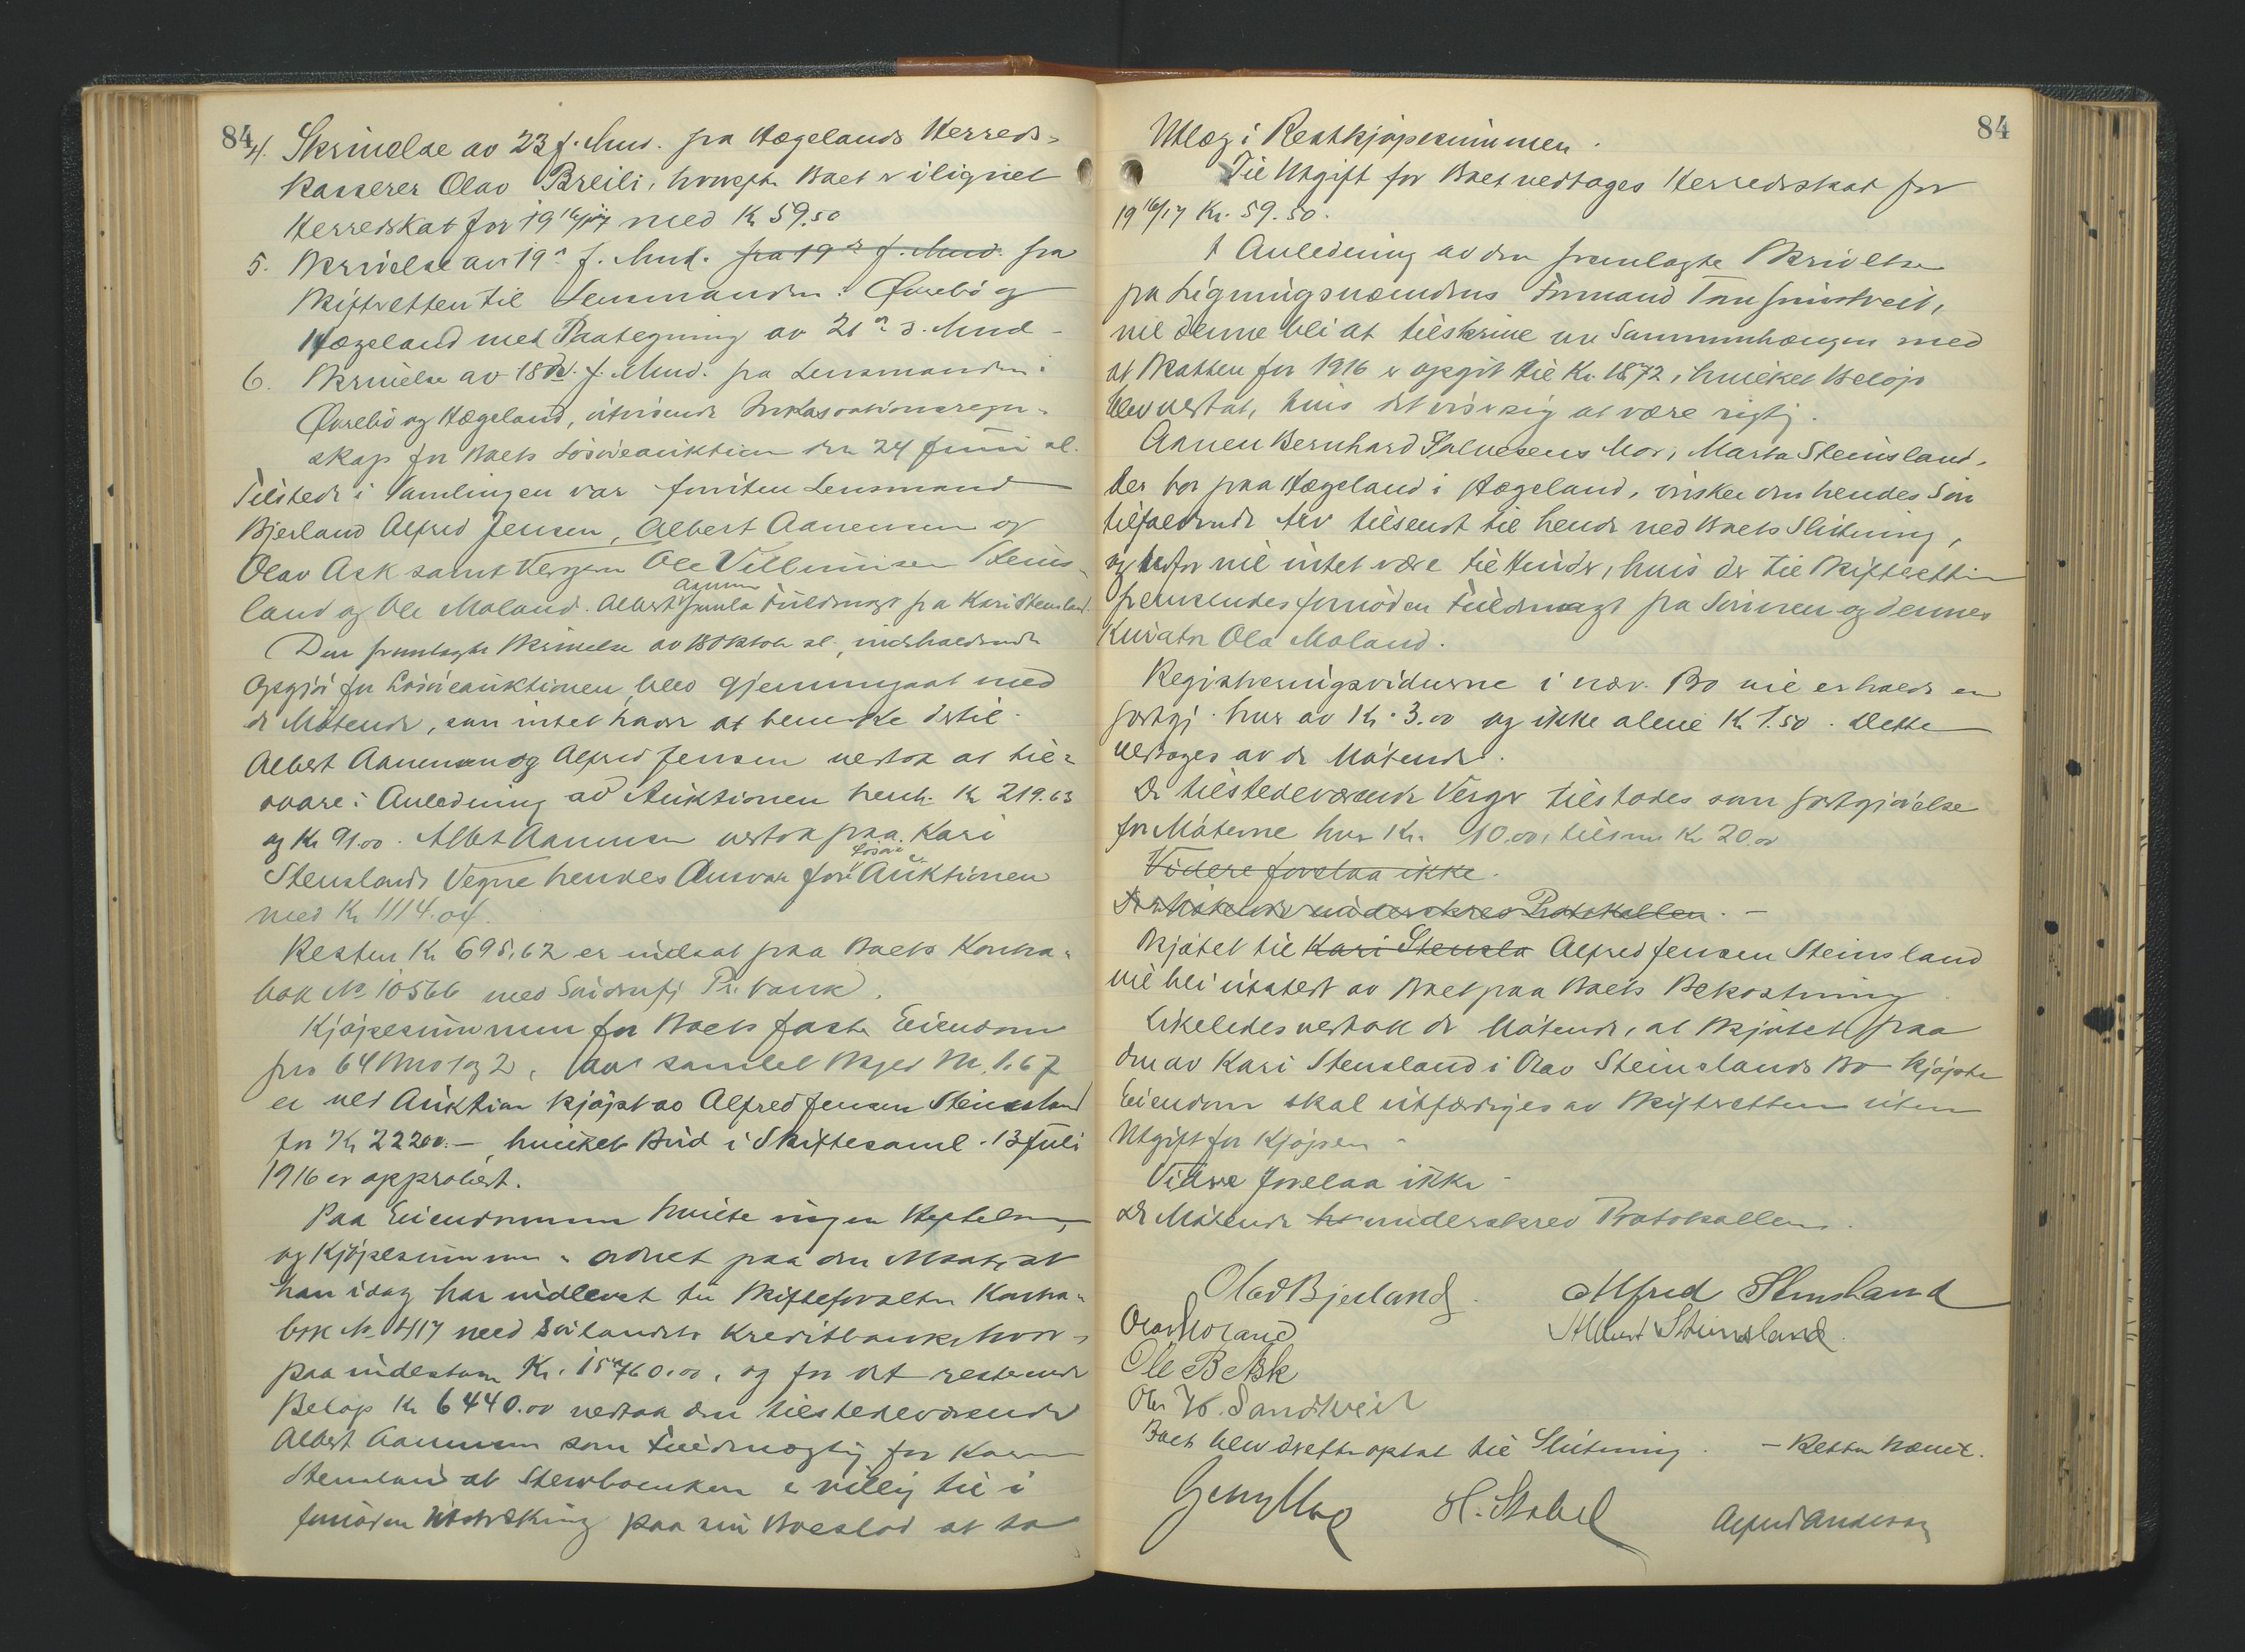 84
4. Skrivelse av 23 f. Mnd. fra Hægelands Herreds-
kasserer Olav Breili, hvorefter Boet er ilignet
Herredskat for 1916/17 med Kr 59.50
5. Skrivelse av 19de f. Mnd. fra 19de f. Mnd. fra
Skifteretten til Lensmanden i Øvrebö og
Hægeland met Paategning av 21de s. Mnd -
6. Skrivelse av 18de f. Mnd. fra Lensmanden i
Øvrebö og Hægeland, utvisende Inkassationsregn-
skap for Boets Lösöreauktion den 24 Juni al.
Tilstede i Samlingen var foruten Lensmand
Bjerland Alfred Jensen, Albert Aanensen og
Olav Ask samt Vergen Ole Villumsen Steins-
land og Ole Moland. Albert Aanensen fremla Fuldmagt fra Kari Stensland.
Den fremlagte Skrivelse av 18 Oktob al., indeholdende
Opgjör for Lösöreauktionen blev gjennemgaat med
de Mötende, som intet havde at bemerke dertil.
Albert Aanensen og Alfred Jensen vedtok at til-
svare i Anledning av Auktionen henh. Kr 219.63
og Kr 91.00. Albert Aanensen vedtok paa Kari
Stenslands Vegne hendes Ansvar for Lösöre Auktionen
med Kr 1114.04.
Resten Kr 695,62 er indsat paa Boets Kontra-
bok No 10566 med Pr. bank.
Kjöpesummen for Boets faste Eiendom
Gno 64 Bno 1 og 2, av samlet Skyld Mk. 1.67
er ved Auktion kjöpt av Alfred Jensen Steinsland
for Kr 22200.-, hvilket Bud i Skiftesaml. 13 Juli
1916 er approbert.
Paa Eiendommen hvilte ingen Heftelser,
og Kjöpesummen er ordnet paa den Maate, at
han idag har indlevert til Skifteforvalteren Kontra-
bok No 417 med Sörlandets Kreditbank, hvor-
paa indestaar Kr. 15760.00, og for det resterende
Belöp Kr 6440.00 vedtok den tilstedeværende
Albert Aanensen som Fuldmægtig for Kari
Stensland at Sterboenken er villig til i
fornöden Utstrækning paa sin Boeslod at ta
84
Utlæg i Restkjöpesummen.
Til Utgift for Boet vedtages Herredsskat for
1916/17 Kr. 59.50.
I Anledning av den fremlagte Skrivelse
fra Ligningsnævndens Formand,
vil denne bli at tilskrive om Sammenhængen med
at Skatten for 1916 er opgit til Kr. 1872, hvilket Belöp
blev vedtat, hvis det viser sig at være rigtig.
Aanen Bernhard Salvesens Mor, Marta Steinsland,
der bor paa Hægeland i Hægeland, önsker den hendes Sön
tilfaldende Arv tilsendt til hende ved Boets Slutning,
og herfor vil intet være til Hinder, hvis der til Skifteretten
fremsendes fornöden Fuldmagt fra Sönnen og dennes
Kurator Ola Moland.
Registreringsvidnerne i nærv. Bo vil erholde en
Godtgj. hver av Kr. 3.00 og ikke alene Kr 1.50. Dette
vedtages av de Mötende.
De tilstedeværende Verger tilstodes som Godtgjörelse
for Möterne hver Kr. 10.00, tilsm Kr 20.00
Videre forelaa ikke.
De Mötende underskrev Protokollen. -
Skjötet til Kari Stensla Alfred Jensen Steinsland
vil bli utstedt av Boet paa Boets Bekostning
Likeledes vedtok de Mötende, at Skjötet paa
den av Kari Stensland i Olav Steinslands Bo kjöpte
Eiendom skal utfærdiges av Skifteretten uten
Utgift for Kjöpen -
Videre forelaa ikke -
De Mötende underskrev Protokollen.
Olav Bjerland. Alfred Stensland
Olav Moland Albert Steinsland.
Ole B Ask
Ole V. Sandtveit
Boet blev derefter optat til Slutning. - Retten hævet.
H. Stabel Alfred Andersen